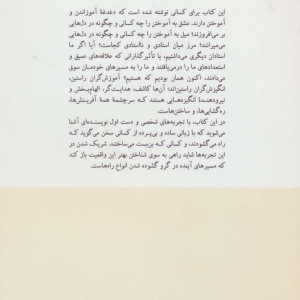 این کتاب برای کسانی نوشته شده است که دغدغهٔ آموزاندن و
آموختن دارند. عشق به آموختن را چه کسانی و چگونه در دل‌هایی
بر می‌افروزند؛ میل به آموختن را چه کسانی و چگونه در دل‌هایی
می‌میرانند؛ مرز میان استادی و نااستادی کجاست؟ آیا اگر ما
استادان دیگری می‌داشتیم، یا تأثیرگذارانی که علاقه‌های عمیق و
استعدادهای ما را درمی‌یافتند و ما را به مسیرهای خودمان سوق
می‌دادند، اکنون همان بودیم که هستیم؟ آموزش‌گران راستین،
انگیزش‌گران راستین‌اند؛ آن‌ها کاشف، هدایت‌گر، الهام‌بخش و
نیرودهندهٔ انگیزه‌هایی هستند که سرچشمهٔ همهٔ آفرینش‌ها،
ره‌گشایی‌ها، و ساختن‌هاست.
در این کتاب، با تجربه‌های شخصی و دست اول نویسنده‌ای آشنا
می‌شوید که با زبانی ساده و بی‌پرده از کسانی سخن می‌گوید که
راه می‌گشودند، و کسانی که بن‌بست می‌ساختند. شریک شدن در
این تجربه‌ها شاید راهی به سوی شناختن بهتر این واقعیت باز کند
که مسیرهای آینده در گرو گشوده شدن انواع راه‌هاست.